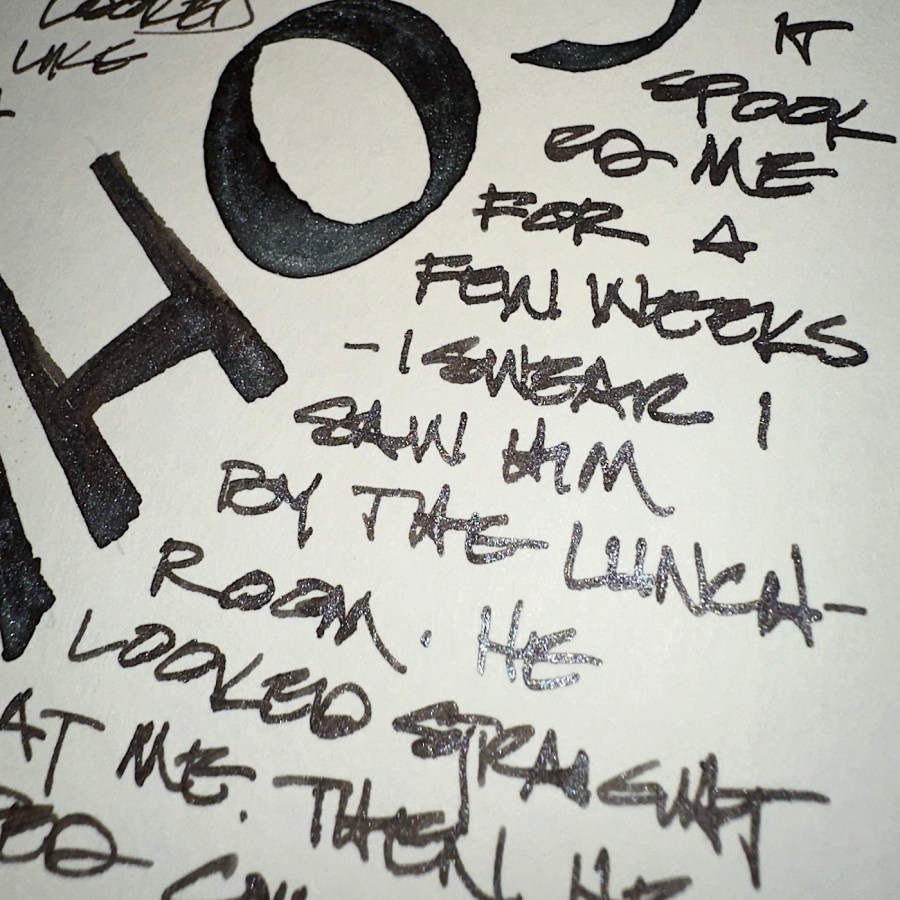 LOOKED
LIKE
HO
IT
SPOOK
ED ME
FOR A
FEW WEEKS
- I SWEAR I
SAW HIM
BY THE LUNCH-
ROOM. HE
LOOKED STRAIGHT
AT ME. THEN HE